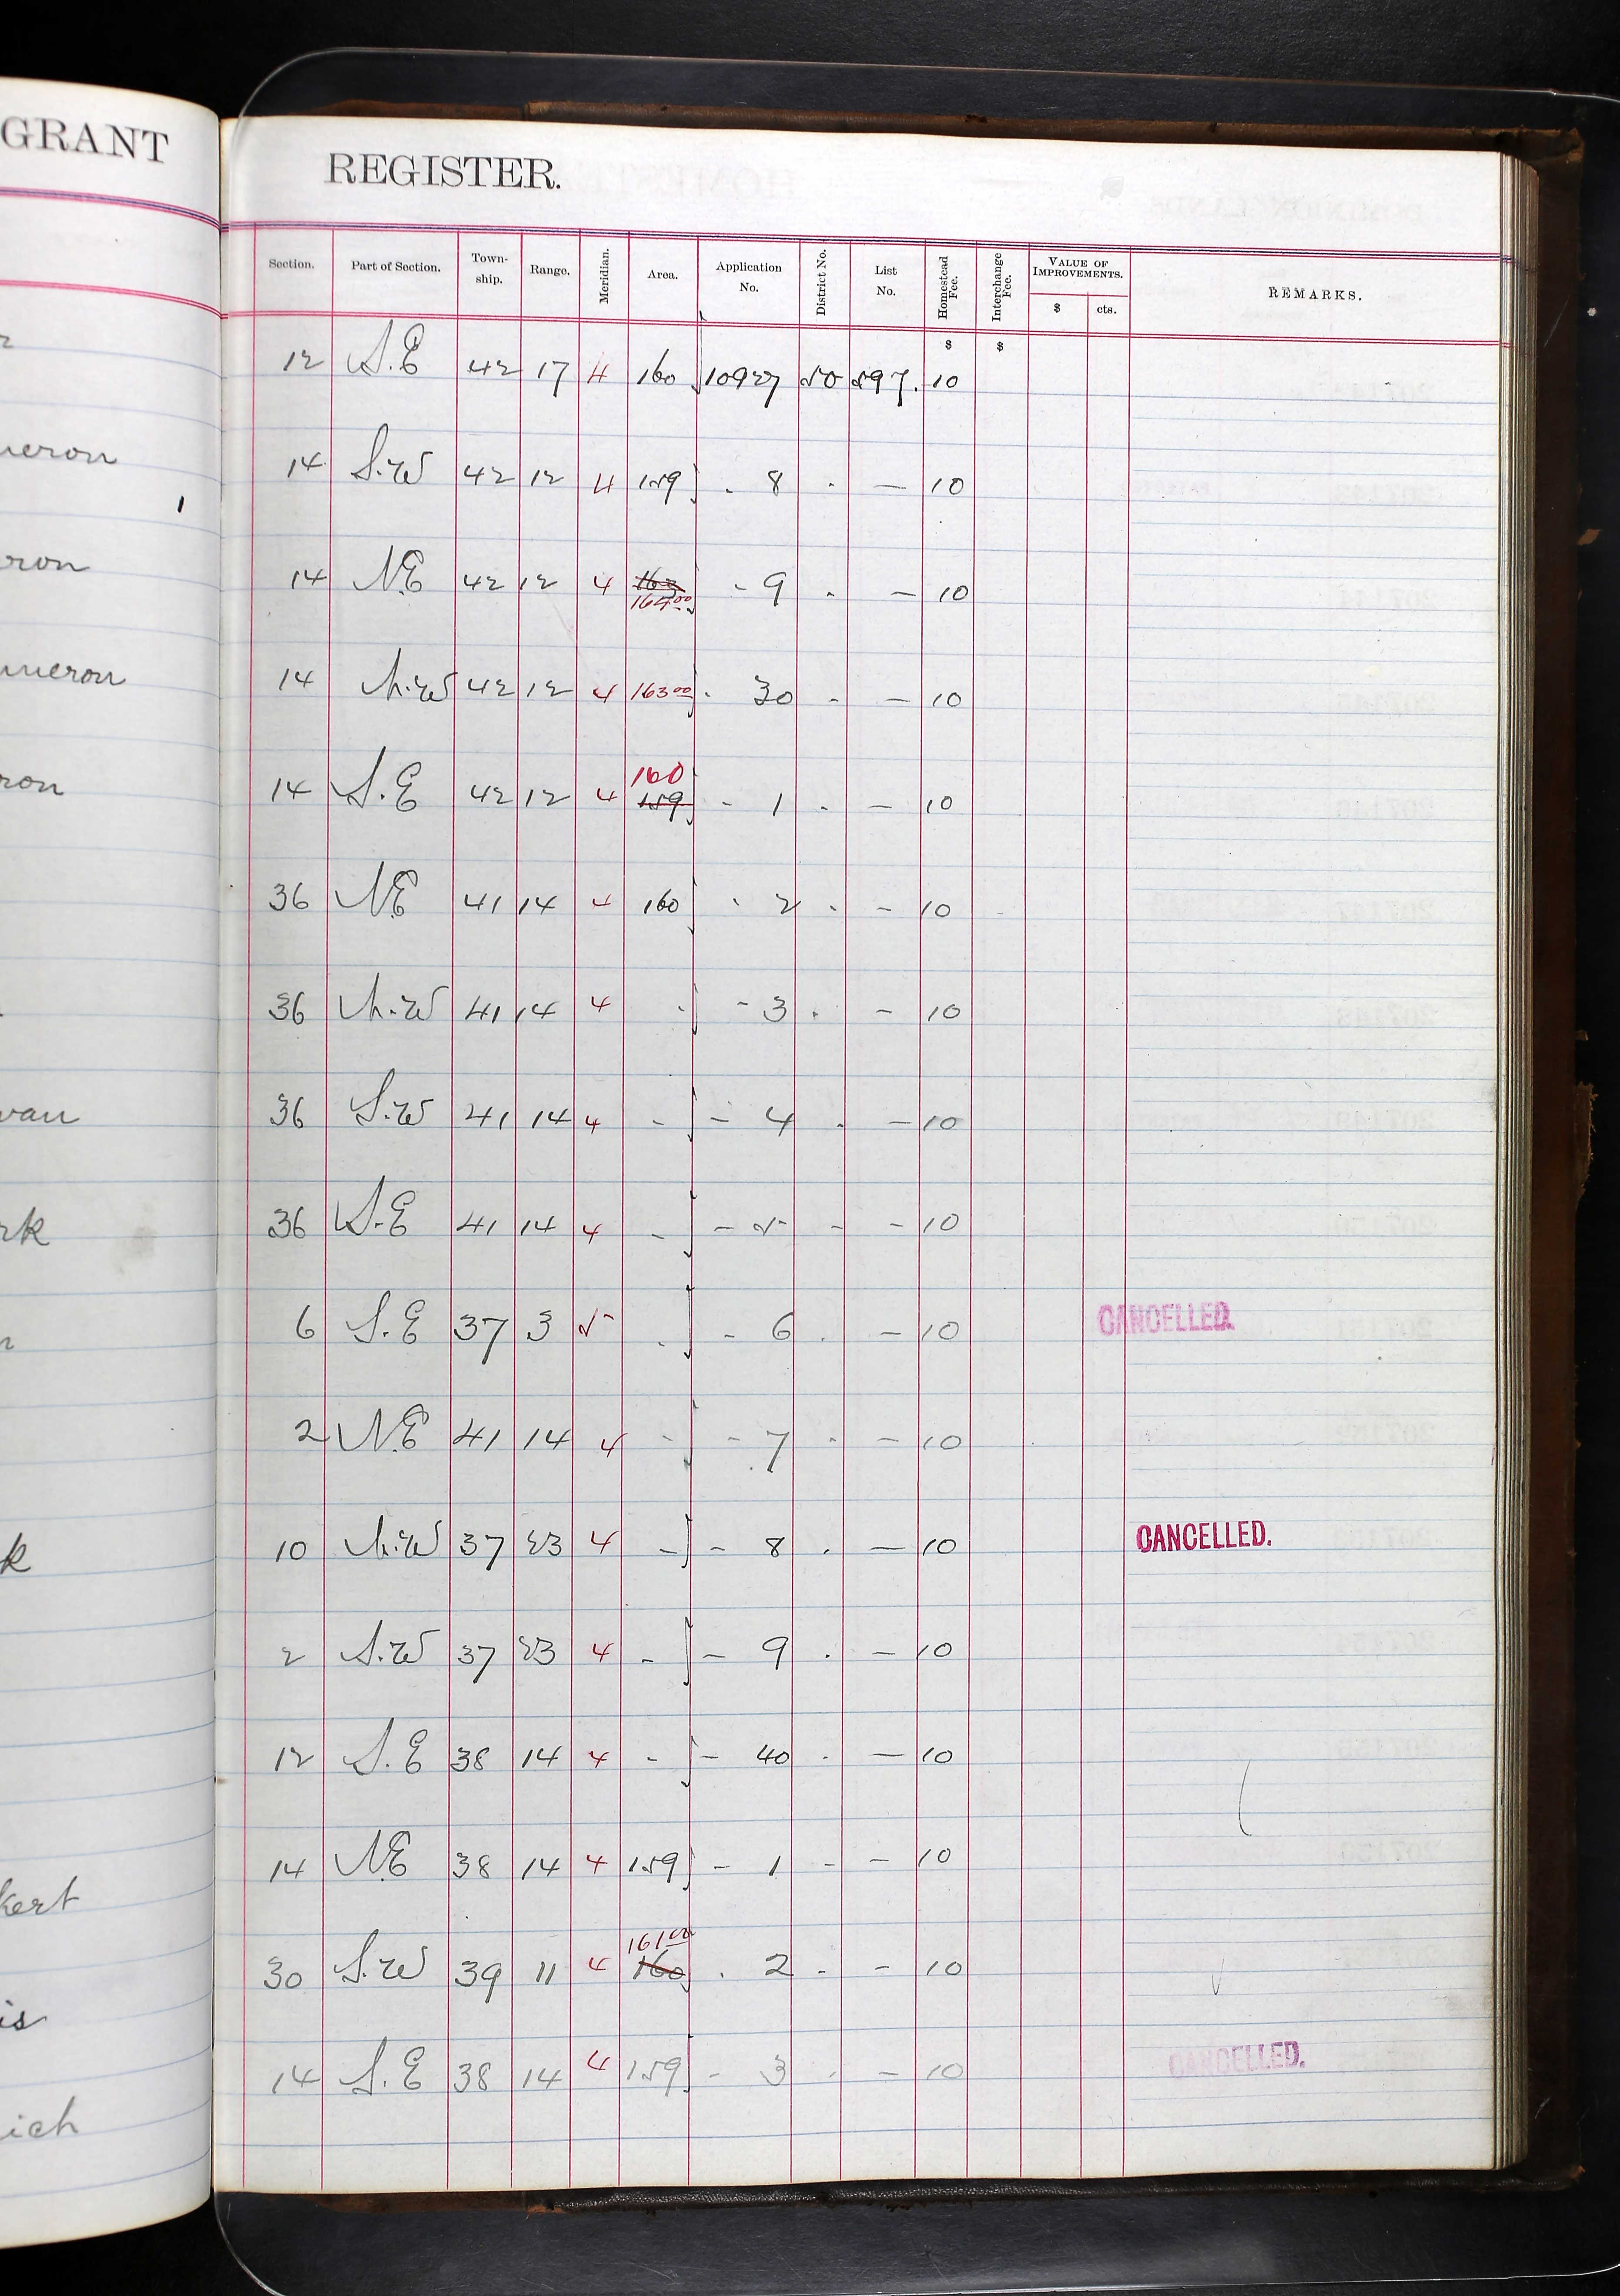 GRANT
REGISTER.
Section. Part of Section. Town-ship. Range. Meridian. Area. Application No. District No. List No. Homestead Fee. Interchange Fee. VALUE OF IMPROVEMENTS. $ cts. REMARKS.
$ $
12 S.E 42 17 4 160 10927 50 597. 10
14 S.W 42 12 4 159 . 8 . — 10
14 N.E 42 12 4 163 164⁰⁰ - 9 . — 10
14 N.W 42 12 4 163⁰⁰ . 30 - — 10
14 S.E 42 12 4 160 159 - 1 . — 10
36 N.E 41 14 4 160 . 2 . - 10
36 N.W 41 14 4 . - 3 . - 10
36 S.W 41 14 4 - - 4 . - 10
36 S.E 41 14 4 - - 5 - - 10
6 S.E 37 3 5 . - 6 . - 10 CANCELLED.
2 N.E 41 14 4 - - 7 . - 10
10 N.W 37 23 4 - - 8 . — 10 CANCELLED.
2 S.W 37 23 4 - - 9 . — 10
12 S.E 38 14 4 - - 40 . — 10
14 N.E 38 14 4 159 - 1 - - 10
30 S.W 39 11 4 161⁰⁰ 160 . 2 - - 10
14 S.E 38 14 4 159 - 3 . - 10 CANCELLED.